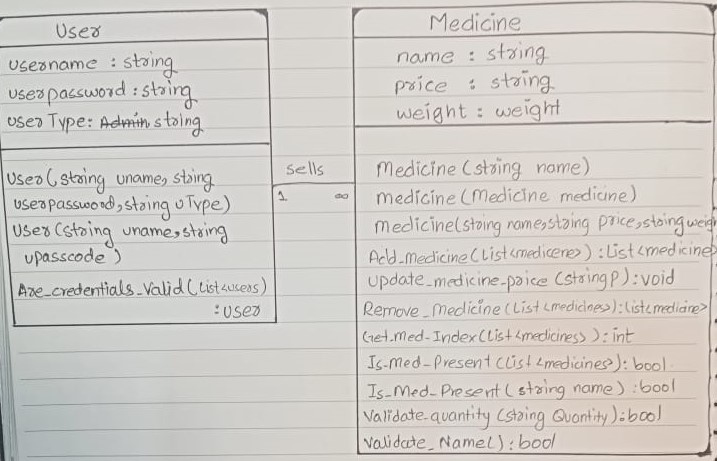 User
username : string
userpassword : string
user Type: Admin string
User (string uname, string
userpassword, string uType)
User (string uname, string
upasscode)
Are_credentials_Valid (List<users)
: User
sells
1 ∞
Medicine
name : string
price : string
weight : weight
Medicine (string name)
medicine (Medicine medicine)
medicine (string name, string price, string weigh
Add_medicine (List<medicenes>) : List<medicine>
update_medicine_price (string p) : void
Remove_Medicine (List<medicines>) : List<medicine>
Get_med-Index (List<mediciness>) : int
Is-med-Present (List<medicines>) : bool.
Is_Med_Present (string name) : bool
Validate_quantity (string Quantity) : bool
Validate_Name() : bool